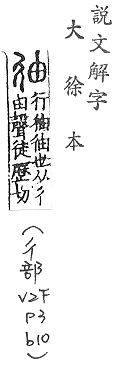 說文解字
大徐本
㣙
行㣙㣙也从彳
由聲徒歷切
(彳部
V2下
P3
b10)